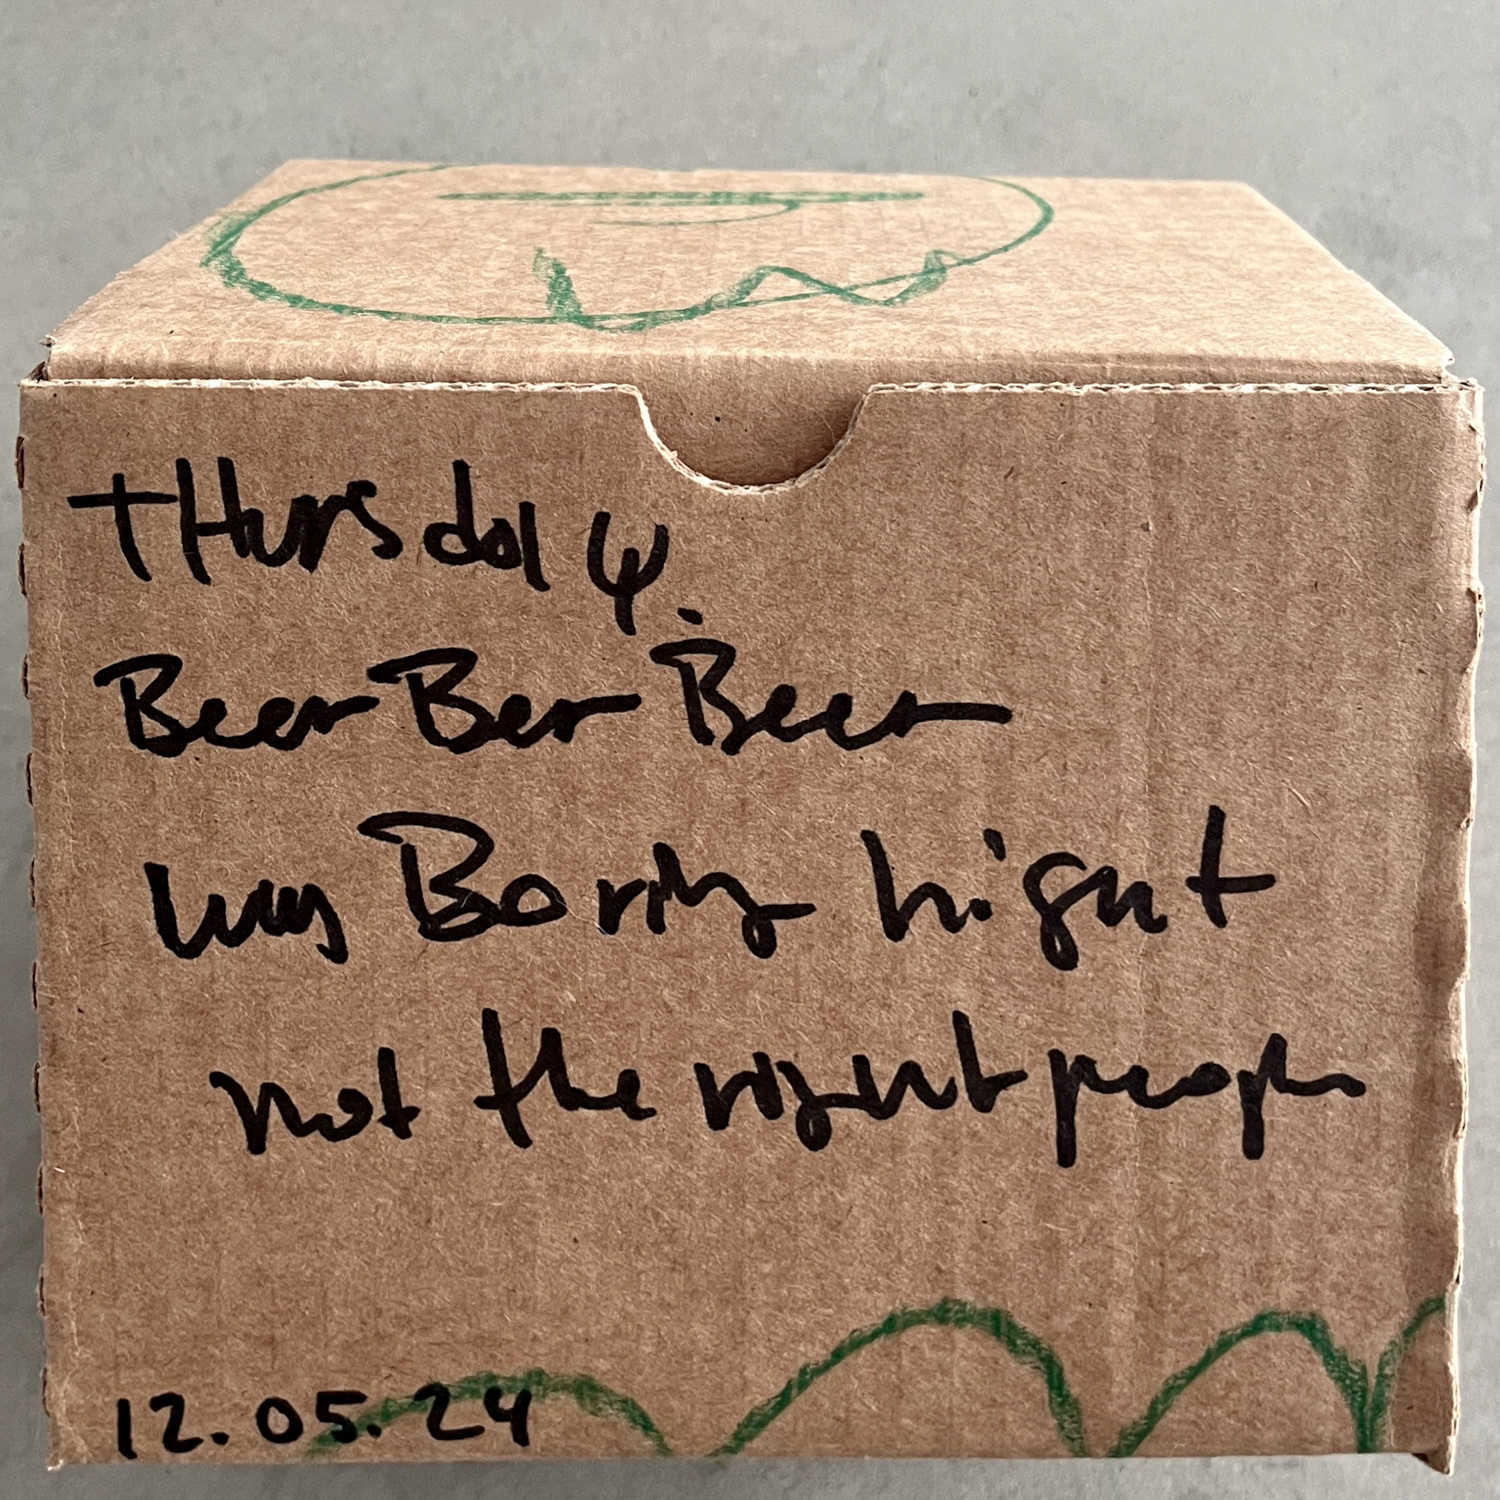 THursday.
Beer Ber Beer
was Boring hignt
not the right people
12.05.24